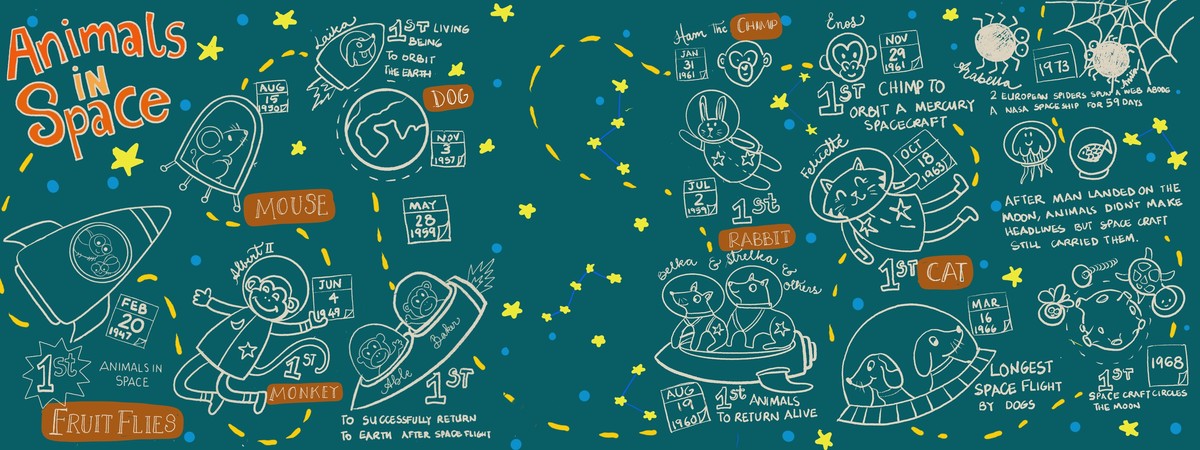 Animals
IN
Space
FEB
20
1947
1st
ANIMALS IN
SPACE
FRUIT FLIES
Albert II
JUN
4
1949
1ST
MONKEY
AUG
15
1950
MOUSE
Laika
1ST LIVING
BEING
TO ORBIT
THE EARTH
DOG
NOV
3
1957
MAY
28
1959
Able
Baker
1ST
TO SUCCESSFULLY RETURN
TO EARTH AFTER SPACE FLIGHT
Ham The CHIMP
JAN
31
1961
Enos
NOV
29
1961
1ST CHIMP TO
ORBIT A MERCURY
SPACECRAFT
JUL
2
1959
1st
RABBIT
Felicette
OCT
18
1963
1ST CAT
Belka & Strelka &
others
AUG
19
1960
1st ANIMALS
TO RETURN ALIVE
MAR
16
1966
LONGEST
SPACE FLIGHT
BY DOGS
Arabella
1973
Anita
2 EUROPEAN SPIDERS SPUN A WEB ABOARD
A NASA SPACESHIP FOR 59 DAYS
AFTER MAN LANDED ON THE
MOON, ANIMALS DIDN'T MAKE
HEADLINES BUT SPACE CRAFT
STILL CARRIED THEM.
1968
1ST
SPACE CRAFT CIRCLES
THE MOON